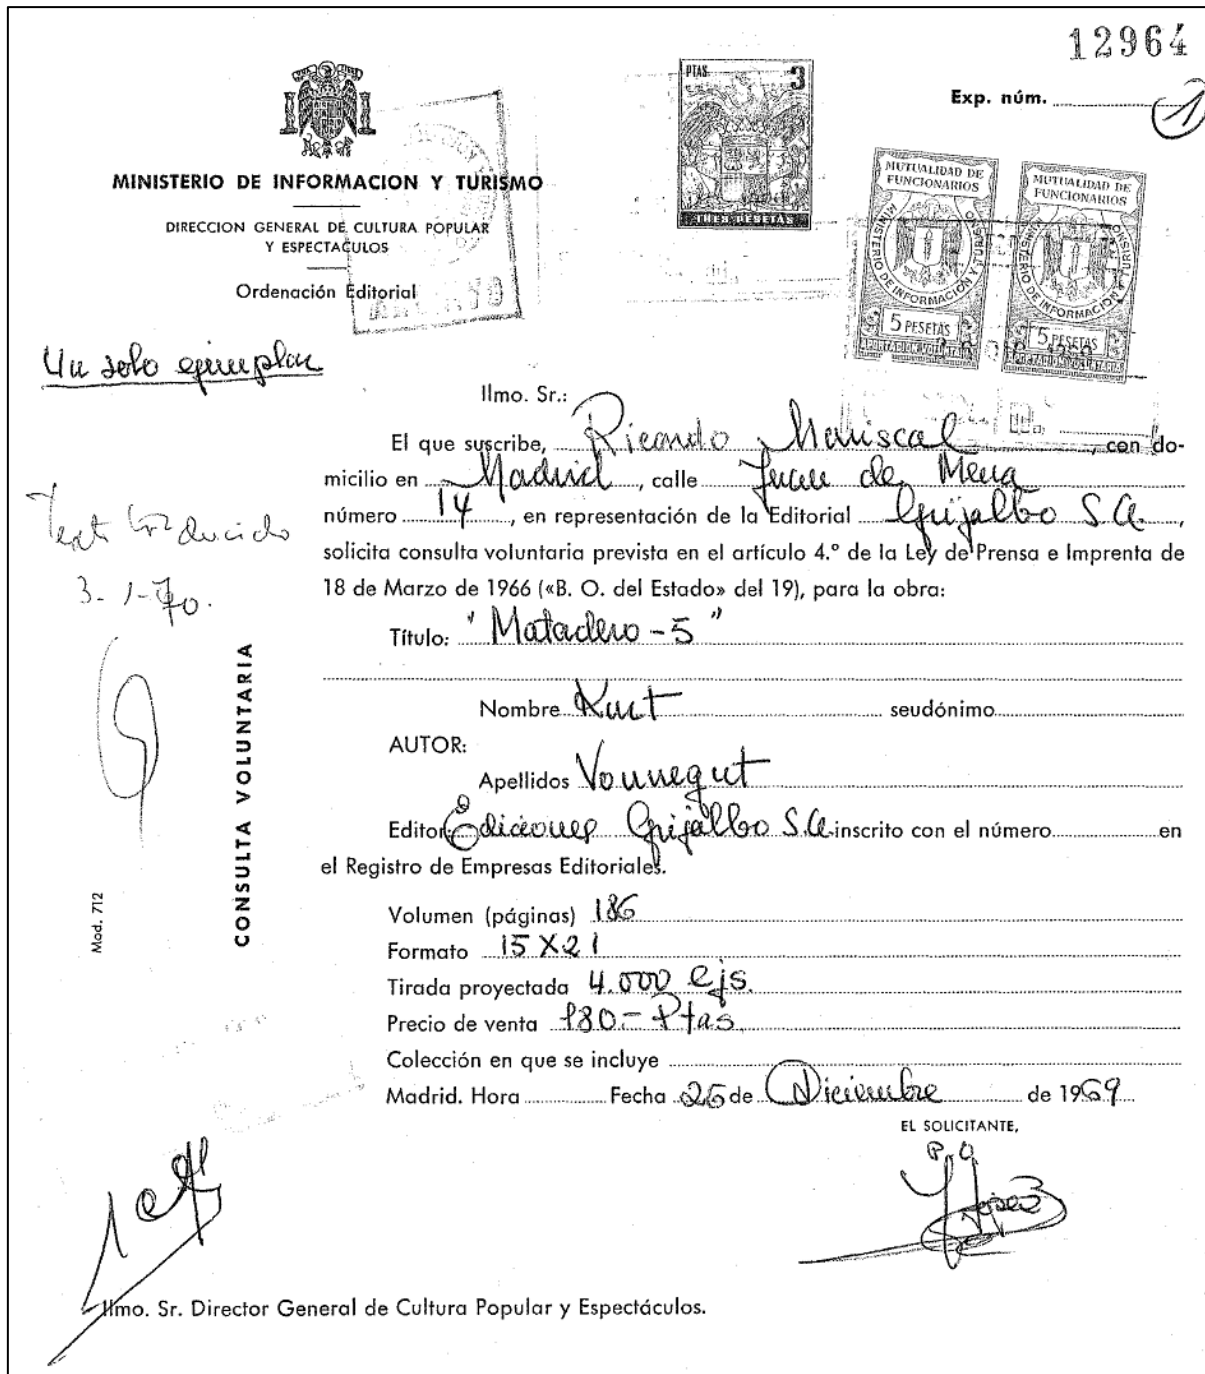 12964
Exp. núm. 1
PTAS. 3
TRES PESETAS
MINISTERIO DE INFORMACION Y TURISMO
DIRECCION GENERAL DE CULTURA POPULAR
Y ESPECTACULOS
Ordenación Editorial
MUTUALIDAD DE
FUNCIONARIOS
MINISTERIO DE INFORMACION Y TURISMO
5 PESETAS
MUTUALIDAD DE
FUNCIONARIOS
MINISTERIO DE INFORMACION Y TURISMO
5 PESETAS
Un solo ejemplar
Ilmo. Sr.:
El que suscribe, Ricardo Mariscal, con do-
micilio en Madrid, calle Juan de Mena
número 14, en representación de la Editorial Grijalbo S.A.,
solicita consulta voluntaria prevista en el artículo 4.º de la Ley de Prensa e Imprenta de
18 de Marzo de 1966 («B. O. del Estado» del 19), para la obra:
Texto traducido
3-1-70.
Título: "Matadero-5"
Nombre Kurt seudónimo
AUTOR:
Apellidos Vonnegut
Editor: Ediciones Grijalbo S.A. inscrito con el número en
el Registro de Empresas Editoriales.
CONSULTA VOLUNTARIA
Mod. 712
Volumen (páginas) 186
Formato 15 X 21
Tirada proyectada 4.000 ejs.
Precio de venta 180.- Ptas
Colección en que se incluye
Madrid. Hora Fecha 26 de Diciembre de 1969
EL SOLICITANTE,
P.O.
Ilmo. Sr. Director General de Cultura Popular y Espectáculos.